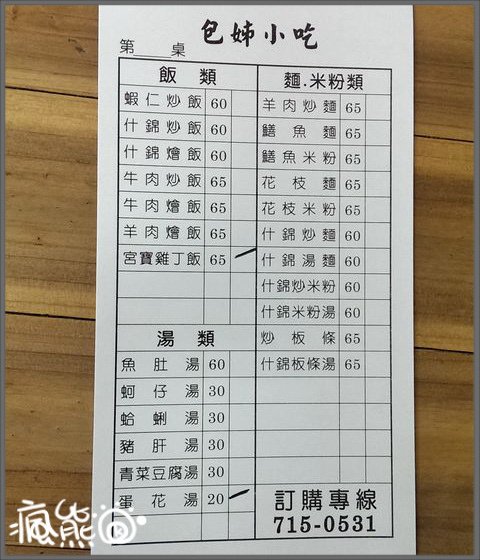 包姊小吃
第　桌
飯類
蝦仁炒飯 60
什錦炒飯 60
什錦燴飯 60
牛肉炒飯 65
牛肉燴飯 65
羊肉燴飯 65
宮寶雞丁飯 65
湯類
魚肚湯 60
蚵仔湯 30
蛤蜊湯 30
豬肝湯 30
青菜豆腐湯 30
蛋花湯 20
麵.米粉類
羊肉炒麵 65
鱔魚麵 65
鱔魚米粉 65
花枝麵 65
花枝米粉 65
什錦炒麵 60
什錦湯麵 60
什錦炒米粉 60
什錦米粉湯 60
炒板條 65
什錦板條湯 65
訂購專線
715-0531
瘋熊窩